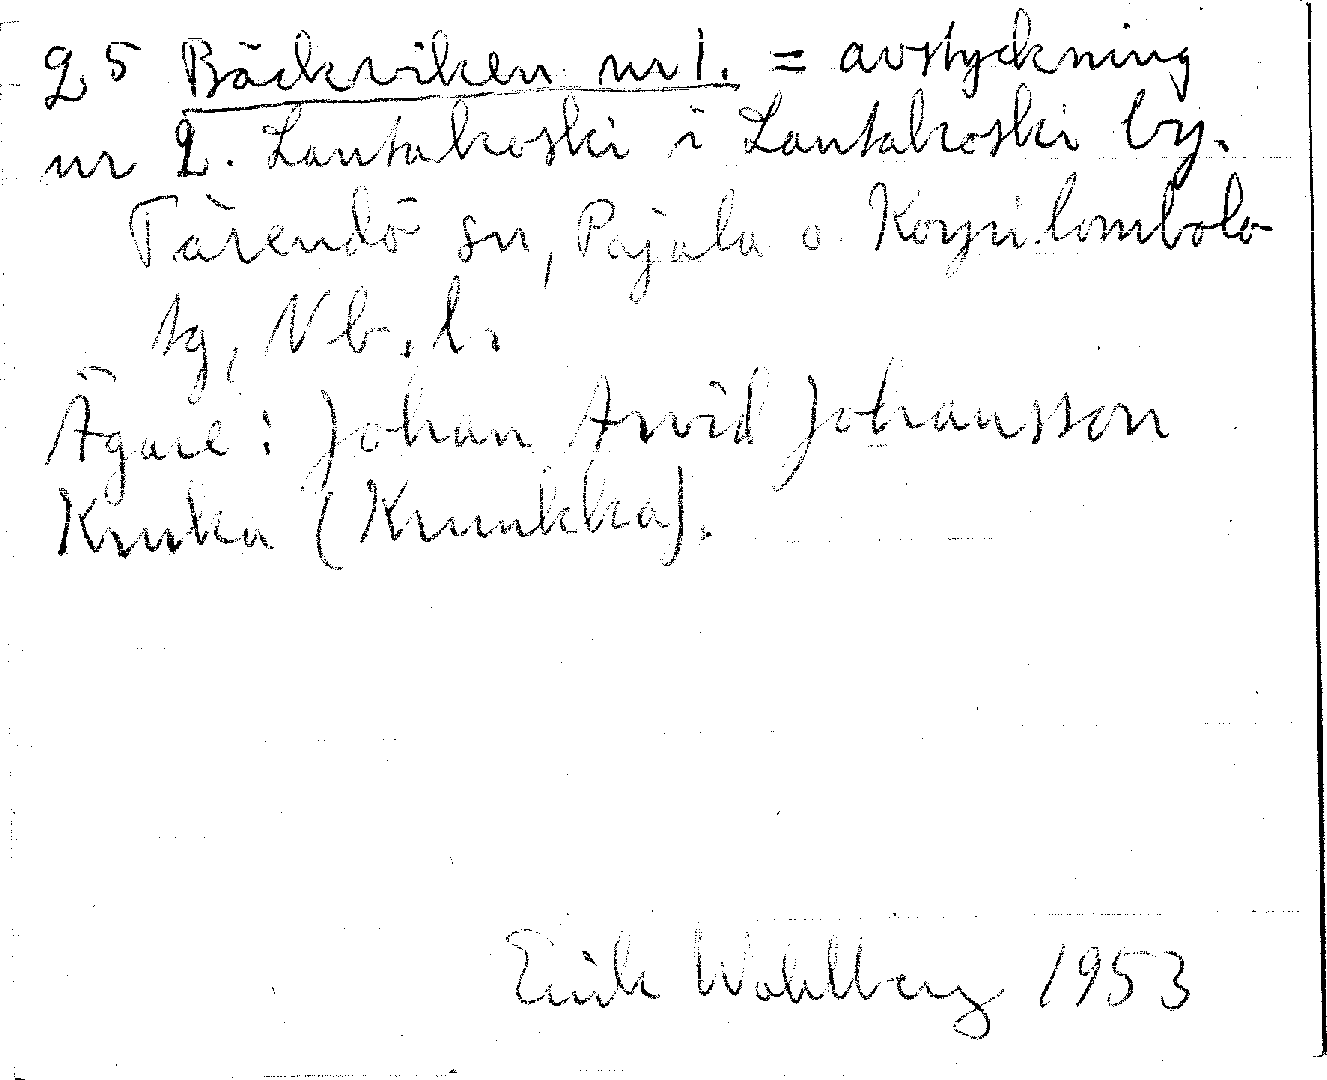 25 Bäckviken nr 1. = avstyckning
nr 2. Lautakoski i Lautakoski by.
Tärendö sn, Pajala o. Korpilombolo
tg, Nb. l.
Ägare: Johan Arvid Johansson
Kruka (Kruukka).
Erik Wahlberg 1953